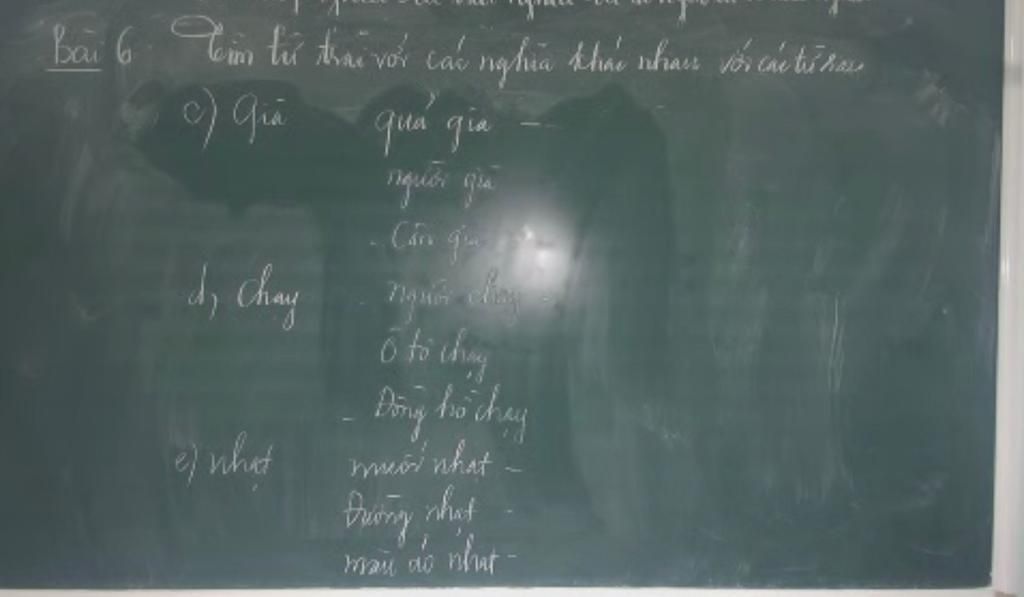 Bài 6 Tìm từ trái với các nghĩa khác nhau với các từ sau
c) Già quả già —
người già
- Cân già
d, chạy - người chạy -
Ô tô chạy
- Đồng hồ chạy
e) nhạt muối nhạt -
Đường nhạt -
màu áo nhạt -